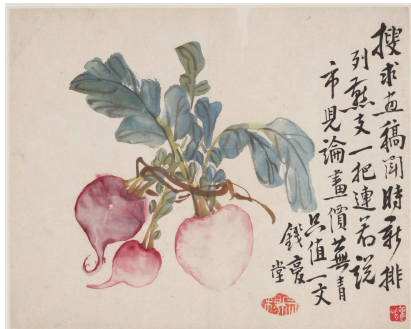 搜求画稿鬥時新排
列燕支一把連若説
市兒論畫價蕪青
只值一文
錢